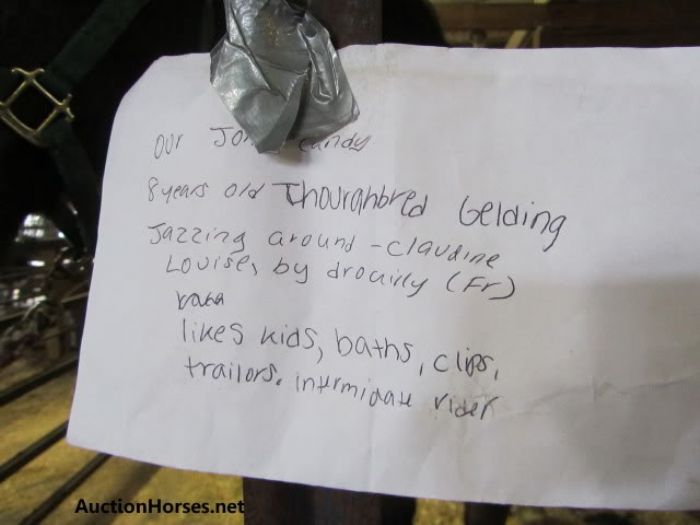 our Jo candy
8 years old Thouroghbred Gelding
Jazzing around - claudine
Louise, by drouilly (Fr)
likes kids, baths, clips,
trailors. intermidate rider
AuctionHorses.net